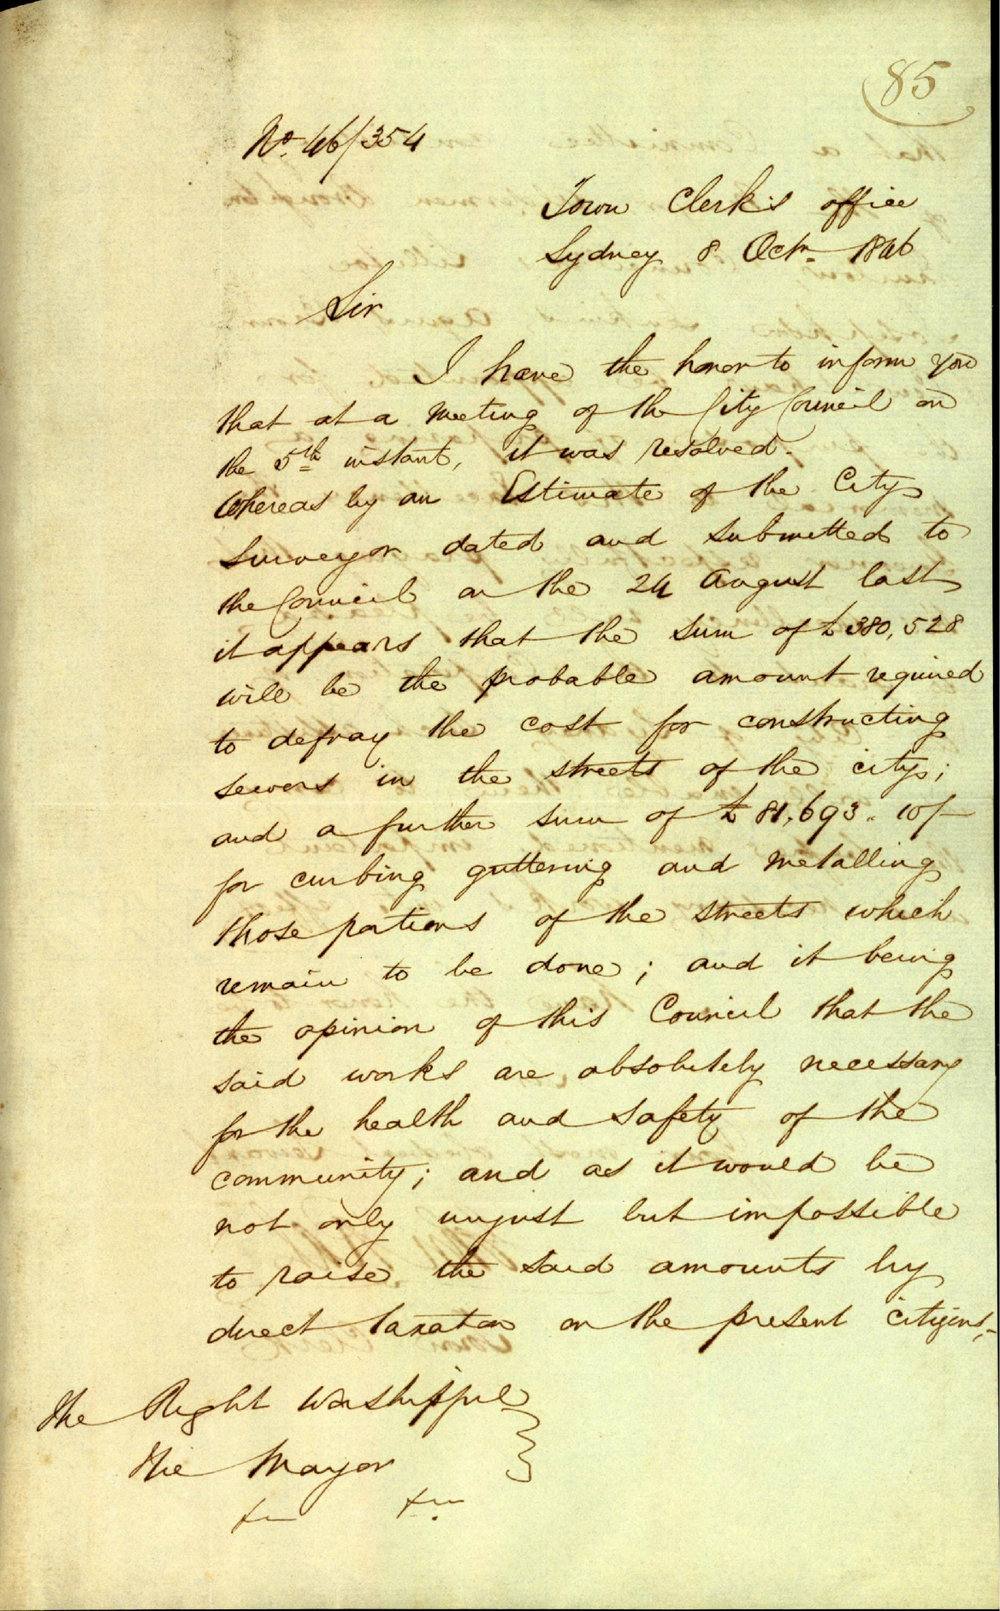 85
No. 46/354
Town Clerk's office
Sydney 8 Octr. 1846
Sir
I have the honor to inform you
that at a meeting of the City Council on
the 5th instant, it was resolved.
Whereas by an Estimate of the City
Surveyor dated and submitted to
the Council on the 24 August last
it appears that the sum of £380,528
will be the probable amount required
to defray the cost for constructing
sewers in the streets of the city;
and a further sum of £81,693.. 10/-
for curbing guttering and metalling
those portions of the streets which
remain to be done; and it being
the opinion of this Council that the
said works are absolutely necessary
for the health and safety of the
community; and as it would be
not only unjust but impossible
to raise the said amounts by
direct taxation on the present citizens,-
The Right Worshipful
The Mayor
&c &c.